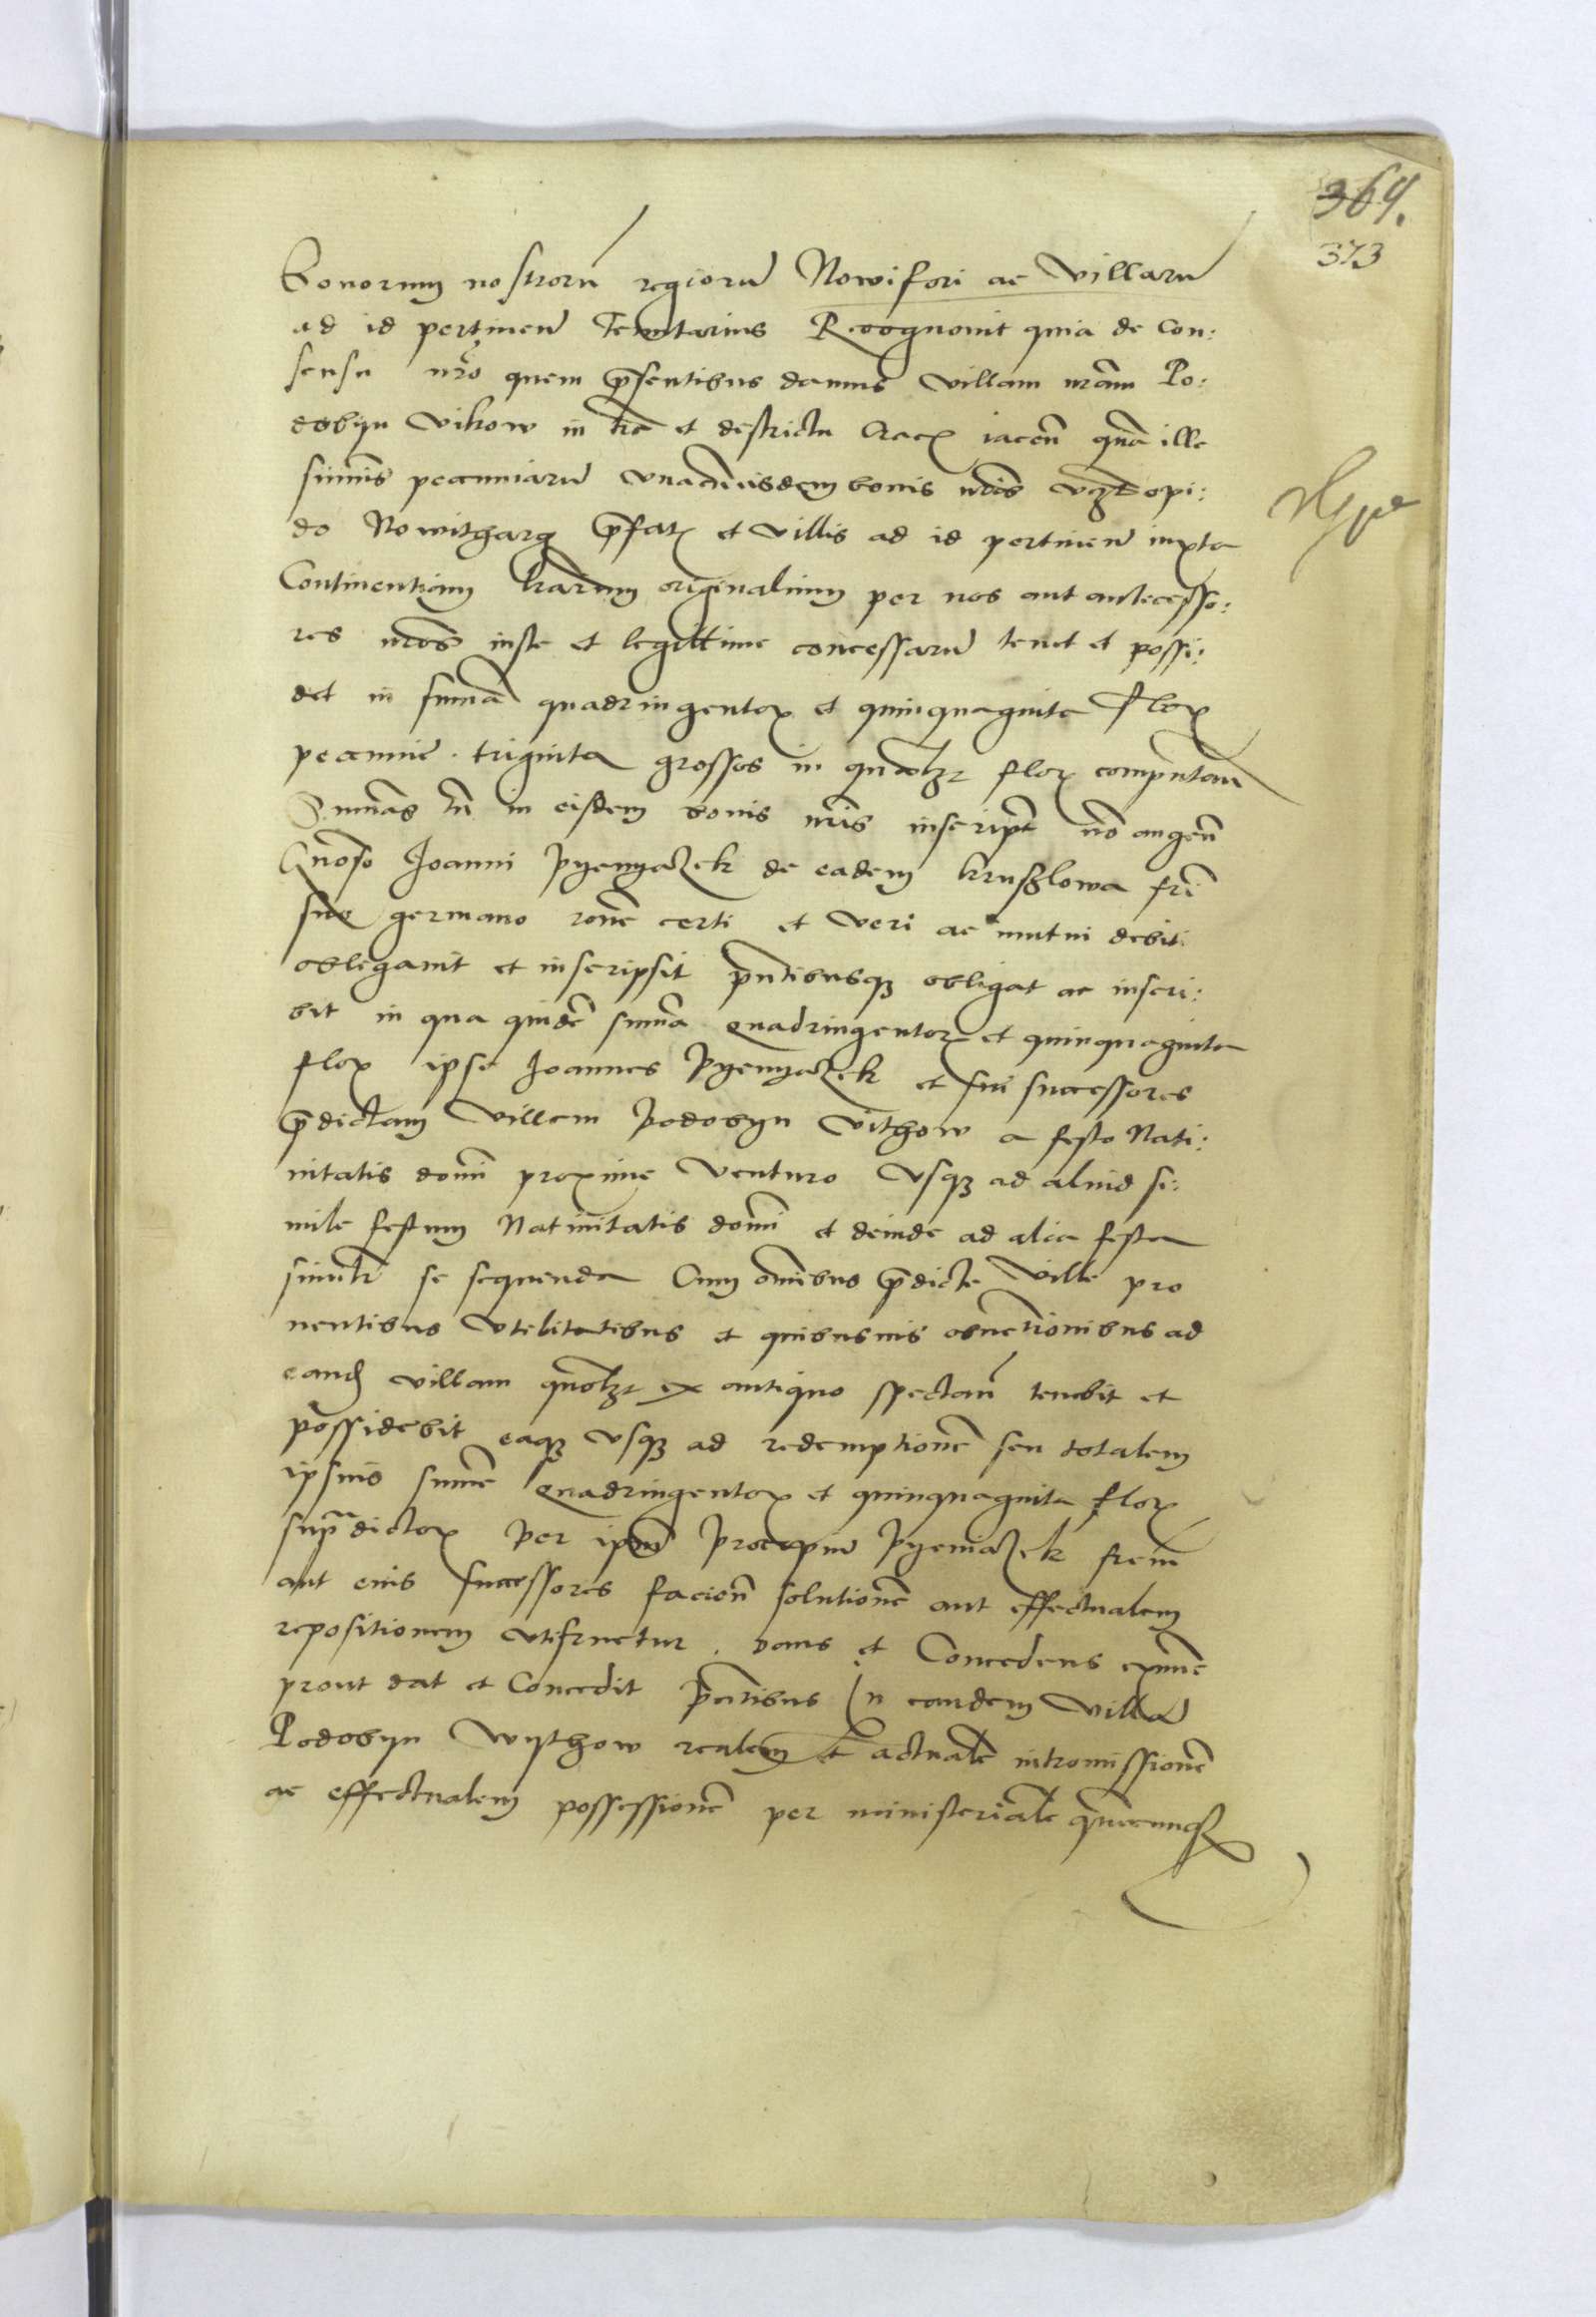 369.
373
Bonorum nostrorū regiorū Nowifori ac villarū
ad id pertinen̄ Tenutarius Recognovit quia de con:
sensu nr̄o quem p̄sentibus damus villam nr̄am Po:
dobyn Vikow in tr̄a et destrictu Crac̄ iacen̄ quā ille
sum̄is pecuniarū unacū eisdem bonis nr̄is vz̄ opi:
do Nowithargk p̄fat̄ et villis ad id pertinen̄ iuxta
Continentiam lr̄arum originalium per nos aut antecesso:
res nr̄os iuste et legittime concessarū tenet et possi:
det in sum̄a quadringentor̄ et quinquaginta flor̄
pecunie . triginta grossos in quotlz̄ flor̄ computan̄
Summas tn̄ in eisdem bonis nr̄is inscript̄ nō augen̄
Gn̄oso Joanni Pyenyazek de eadem Kruszlowa fr̄i
suo germano rōne certi et veri ac mutui debiti
obligavit et inscripsit p̄ntibusq̄ obligat ac inscri:
bit in qua quidē sum̄a quadringentor̄ et quinquaginta
flor̄ ipse Joannes Pyenyazek et sui successores
p̄dictam villam Podobyn Vithow a festo Nati:
vitatis domī proxime venturo usq̄ ad aliud si:
mile festum Nativitatis domī et deinde ad alia festa
simil̄r se sequenda Cum om̄ibus p̄dicte Ville pro
ventibus utilitatibus et quibusvis obvētionibus ad
eand̄ villam quotlz̄ ex antiquo spectan̄ tenebit et
possidebit eaq̄ usq̄ ad redemptionē seu totalem
ipsius sum̄e quadringentor̄ et quinquaginta flor̄
supradictor̄ per ipsū Procopiū Pyeniazek fr̄em
aut eius successores facien̄ solutionē aut effectualem
repositionem utifruetur . dans et Concedens exnūc
prout dat et Concedit p̄ntibus In eandem villā
Podobyn Wythow realem et actualē intromissionē
ac effectualem possessionē per ministerialē quēcunq̄